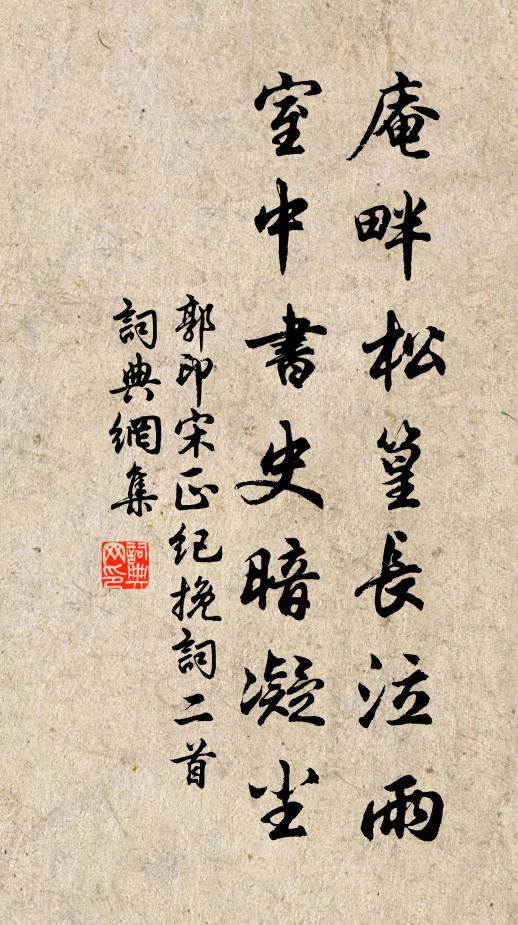 庵畔松篁長泣雨
室中書史暗凝尘
郭印宋正纪挽詞二首
詞典網集
詞典网印